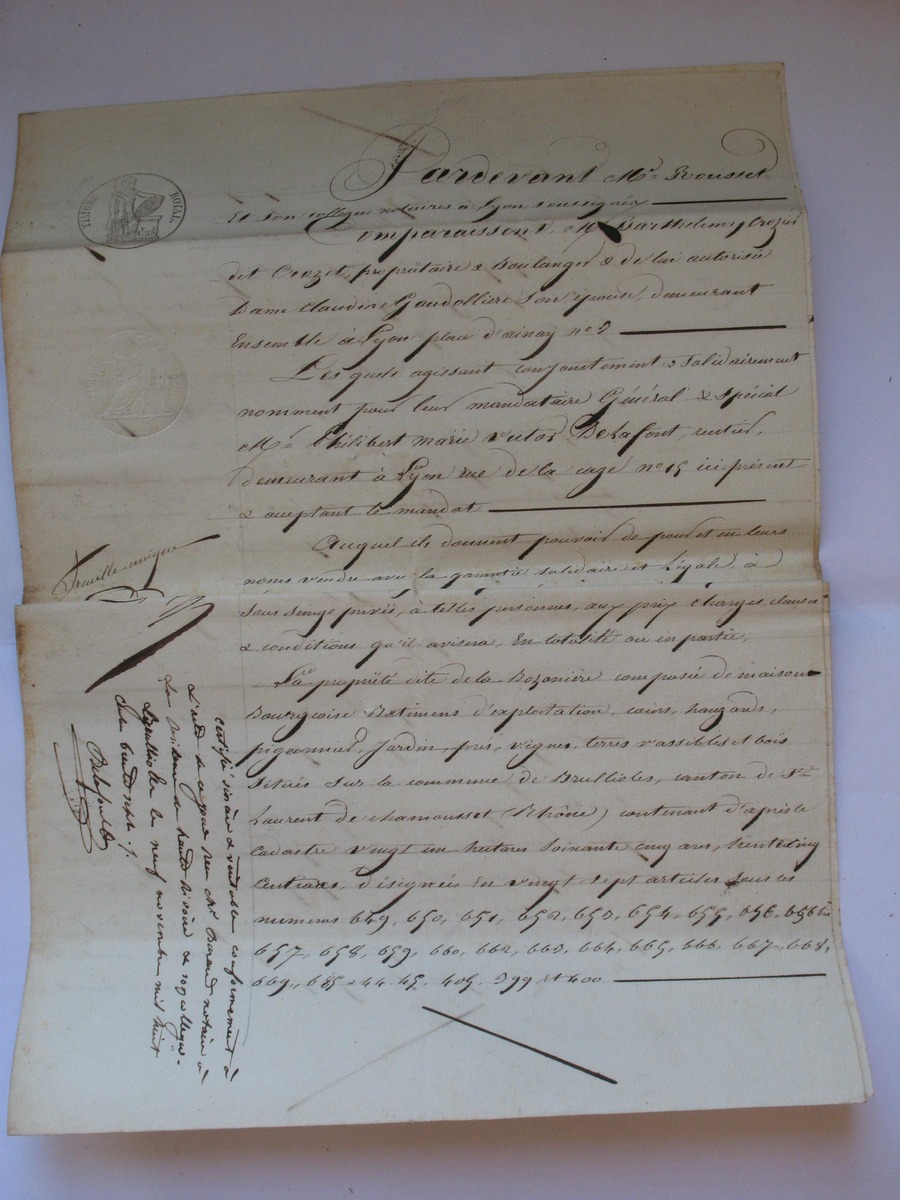 TIMBRE ROYAL
Pardevant Mr. Rousset
Et son collègue notaires à Lyon soussignés
Comparaissent Mr Barthelemy Crozier
dit Crozet, propriétaire & Boulanger & de lui autorisée
Dame Claudine Gaudollière son épouse, demeurant
Ensemble à Lyon place d'ainay no 9
Les quels agissant conjointement & solidairement
nomment pour leur mandataire Général & spécial
Mr. Philibert Marie victor Delafont, rentier,
demeurant à Lyon rue de la cage no 15 ici présent
& acceptant le mandat
Auquel ils donnent pouvoir de pour et en leurs
noms vendre avec la garantie solidaire et Légale à
sous seings privés, à telles personnes, aux prix charges, clauses
& conditions qu'il avisera, En totalité ou en partie,
La propriété dite de la Bozonière composée de maison
Bourgeoise Batimens d'exploitation, cours, hangards,
pigeonnier, Jardin, prés, vignes, terres vassibles et bois
Situés sur la commune de Brullioles, canton de St
Laurent de chamousset (Rhône) contenant d'après le
cadastre vingt un hectares soixante cinq ares, trente cinq
centiares, désignées En vingt sept articles sous les
numeros 649, 650, 651, 652, 653, 654, 655, 656, 656 bis
657, 658, 659, 660, 662, 663, 664, 665, 666, 667, 668,
669, 685, 44, 45, 405, 399 et 400
Feuille unique
certifié sincère & véritable conformément à
L'acte de ce jour reçu Mr Durand notaire à
& son collègue.
le neuf novembre mil huit
cent trente
Delafont